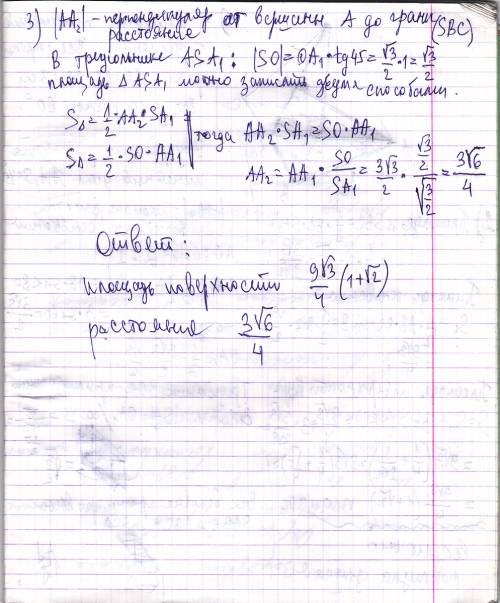 3) |AA₂| - перпендикуляр от вершины A до грани (SBC)
расстояние
В треугольнике ASA₁: |SO| = OA₁·tg45 = √3/2 · 1 = √3/2
площадь Δ ASA₁ можно записать двумя способами.
S△ = 1/2 · AA₂ · SA₁
S△ = 1/2 · SO · AA₁
тогда AA₂ · SA₁ = SO · AA₁
AA₂ = AA₁ · SO/SA₁ = 3√3/2 · (√3/2)/(√(3/2)) = 3√6/4
Ответ:
площадь поверхности 9√3/4 (1+√2)
расстояние 3√6/4